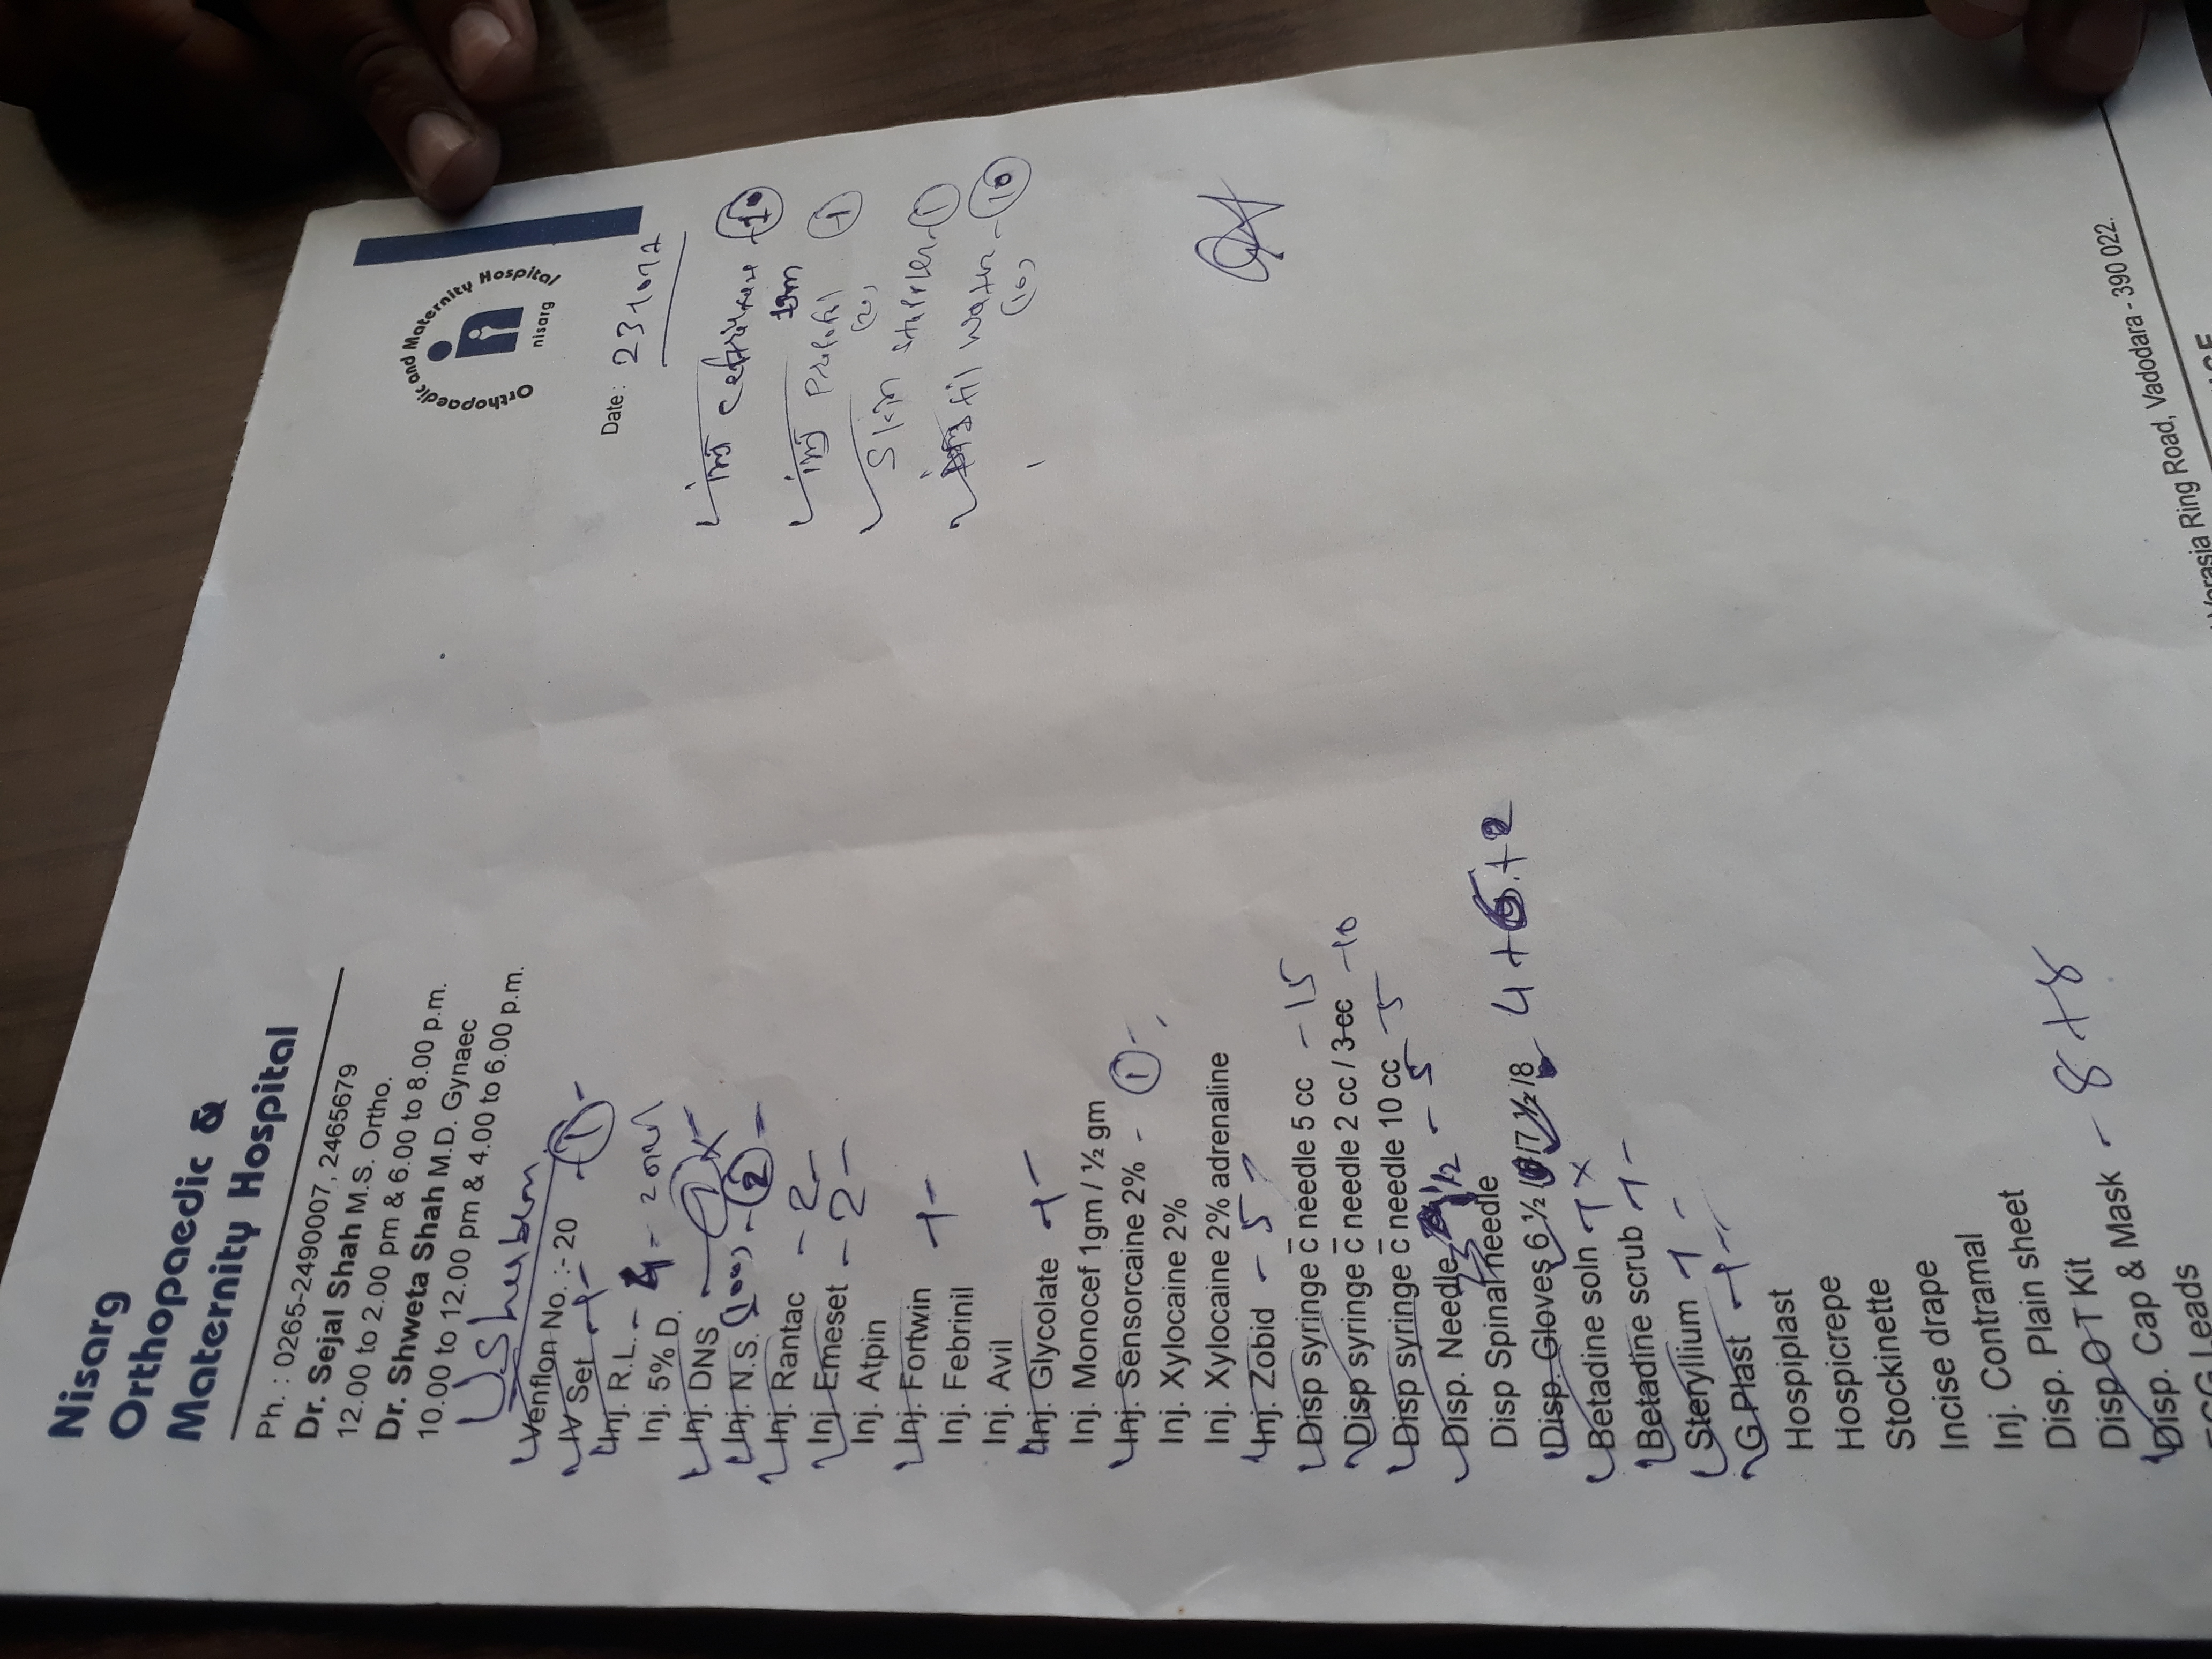 Nisarg
Orthopaedic &
Maternity Hospital
Ph. : 0265-2490007, 2465679
Dr. Sejal Shah M.S. Ortho.
12.00 to 2.00 pm & 6.00 to 8.00 p.m.
Dr. Shweta Shah M.D. Gynaec
10.00 to 12.00 pm & 4.00 to 6.00 p.m.
Orthopaedic and Maternity Hospital
nisarg
Date :
Venflon No. :- 20 - 1 -
IV Set - 1 -
Inj. R.L. - 4 -
Inj. 5% D.
Inj. DNS
Inj. N.S. (100) - 2 -
Inj. Rantac - 2 -
Inj. Emeset - 2 -
Inj. Atpin
Inj. Fortwin - 1 -
Inj. Febrinil
Inj. Avil
Inj. Glycolate - 1 -
Inj. Monocef 1gm / ½ gm
Inj. Sensorcaine 2% - 1 -
Inj. Xylocaine 2%
Inj. Xylocaine 2% adrenaline
Inj. Zobid - 5 -
Disp syringe c̄ needle 5 cc - 15
Disp syringe c̄ needle 2 cc / 3 cc - 10
Disp syringe c̄ needle 10 cc - 5
Disp. Needle 1½ - 5
Disp Spinal needle
Disp. Gloves 6 ½ / 7 / 7 ½ / 8 4 + 6 + 2
Betadine soln - 1 x
Betadine scrub - 1 -
Steryllium - 1 -
G Plast - 1 -
Hospiplast
Hospicrepe
Stockinette
Incise drape
Inj. Contramal
Disp. Plain sheet
Disp OT Kit
Disp. Cap & Mask - 8 + 8
ECG Leads
inj
1gm
inj Propofol 1
(20)
Skin stapler - 1
water - 10
(10)
Warasia Ring Road, Vadodara - 390 022.